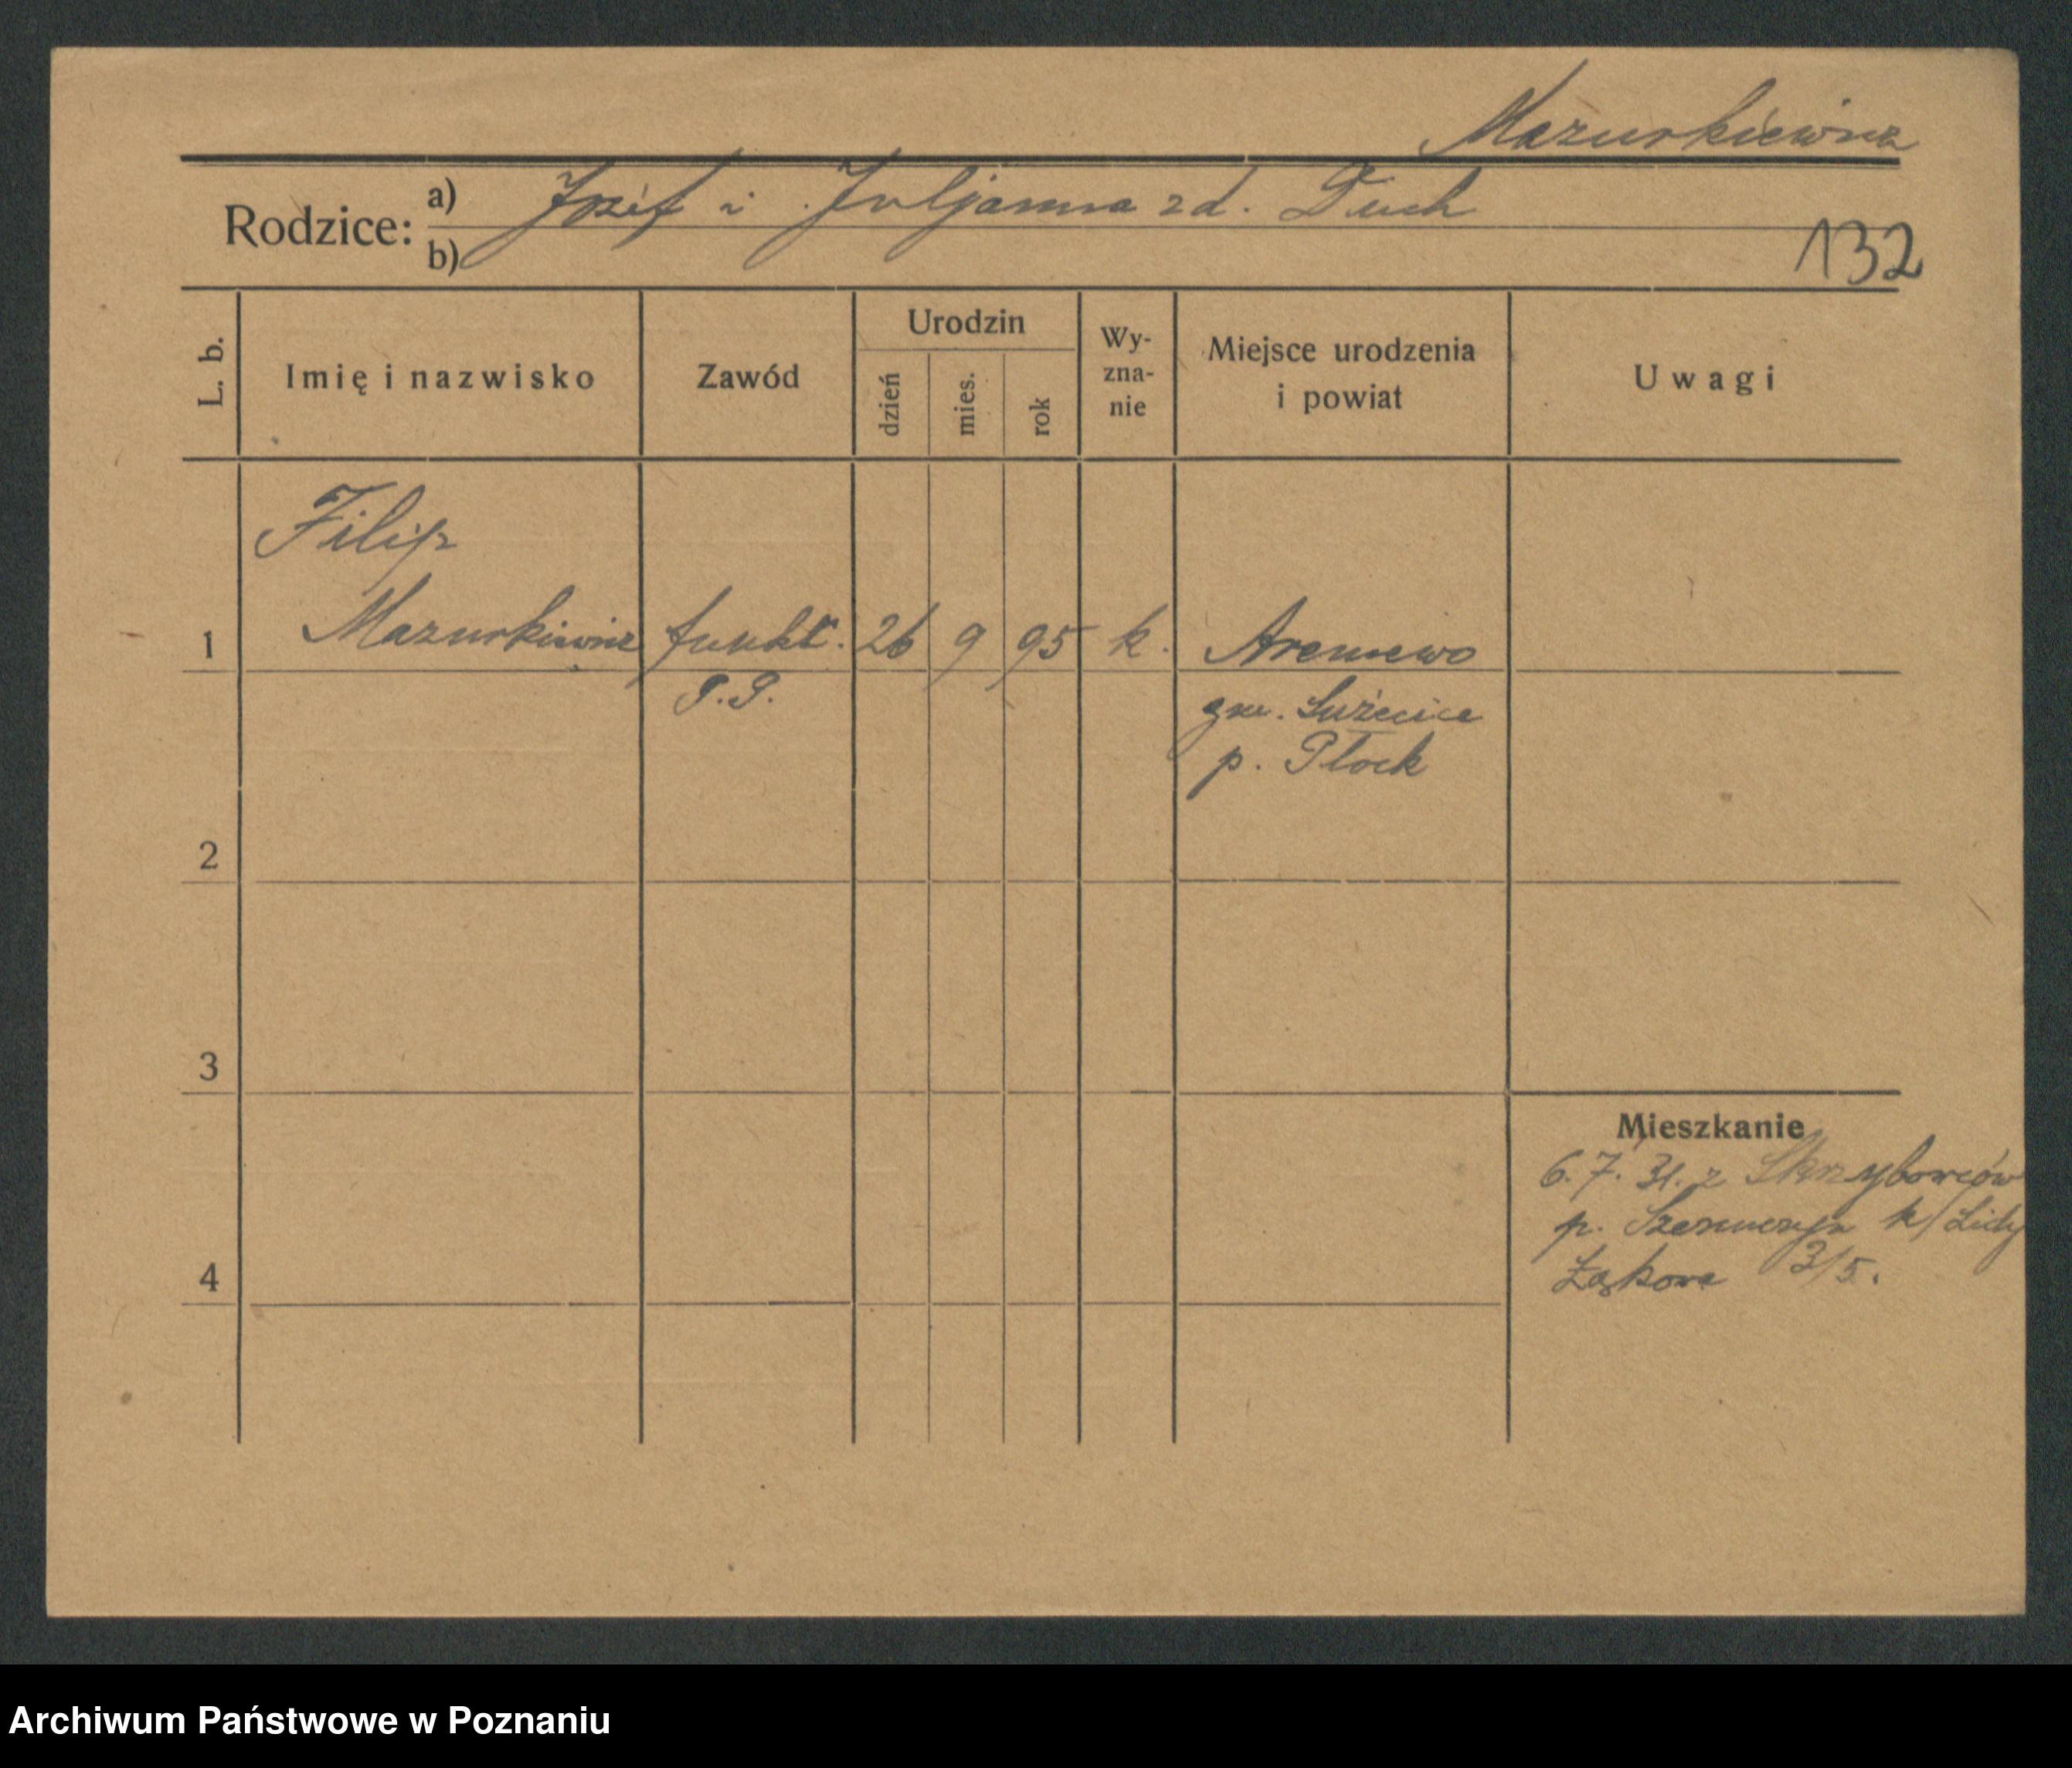 Mazurkiewicz
Rodzice: a) Józef i Juljanna zd. Duch
b)
132
L. b. Imię i nazwisko Zawód Urodzin dzień mies. rok Wy-zna-nie Miejsce urodzenia i powiat Uwagi
Filip
1 Mazurkiewicz funkc. 26 9 95 k.
P.P.
gm.
p. Płock
2
3
Mieszkanie
6.7.31. z
p. k/Lidy
4 Łąkowa 3/5.
Archiwum Państwowe w Poznaniu